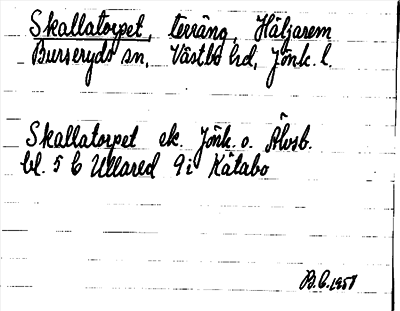 Skallatorpet, terräng, Häljarem
Burseryds sn, Västbo hd, Jönk. l.
Skallatorpet ek. Jönk. o. Älvsb.
bl. 5 C Ullared 9i Kätabo
B.C. 1957